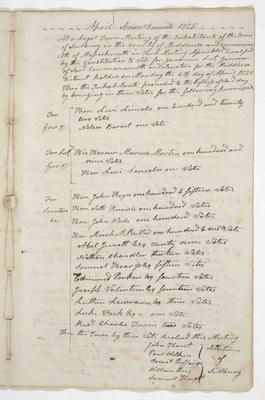 April Anno Domini 1825
At a Legal Town Meeting of the Inhabitants of the Town
of Sudbury in the County of Middlesex and
of Massachusetts in Town Meeting Assembled Qualified
by the Constitution to Vote for Governor Lieut Governor
of said Commonwealth & Senators for the Middlesex
District holden on Monday the 4th day of April 1825
Then the Inhabitants proceeded to the of the day
by bringing in their Votes for the following persons viz
For Hon. Levi Lincoln one hundred and twenty
two Votes
Govr
Nelson one Vote
For Lieut His Honour Marcus Morton one hundred and
nine Votes
Govr
Hon Levi Lincoln one Vote
For Hon. John Keyes one hundred & fifteen Votes
Senators Hon. Seth one hundred Votes
Hon. John Wade one hundred Votes
Hon. one hundred & one Votes
Abel Jewett Esq ninety nine Votes
Nathan Chandler thirteen Votes
Samuel Hoar Jr Esq fifteen Votes
Edmund Parker Esq fourteen Votes
Joseph Valentine Esq fourteen Votes
Luther Lawrence Esq three Votes
Luke Esq one Vote
Then the Town by their Vote disolved this Meeting
John Hunt
Selectmen
of
Sudbury
William
Samuel